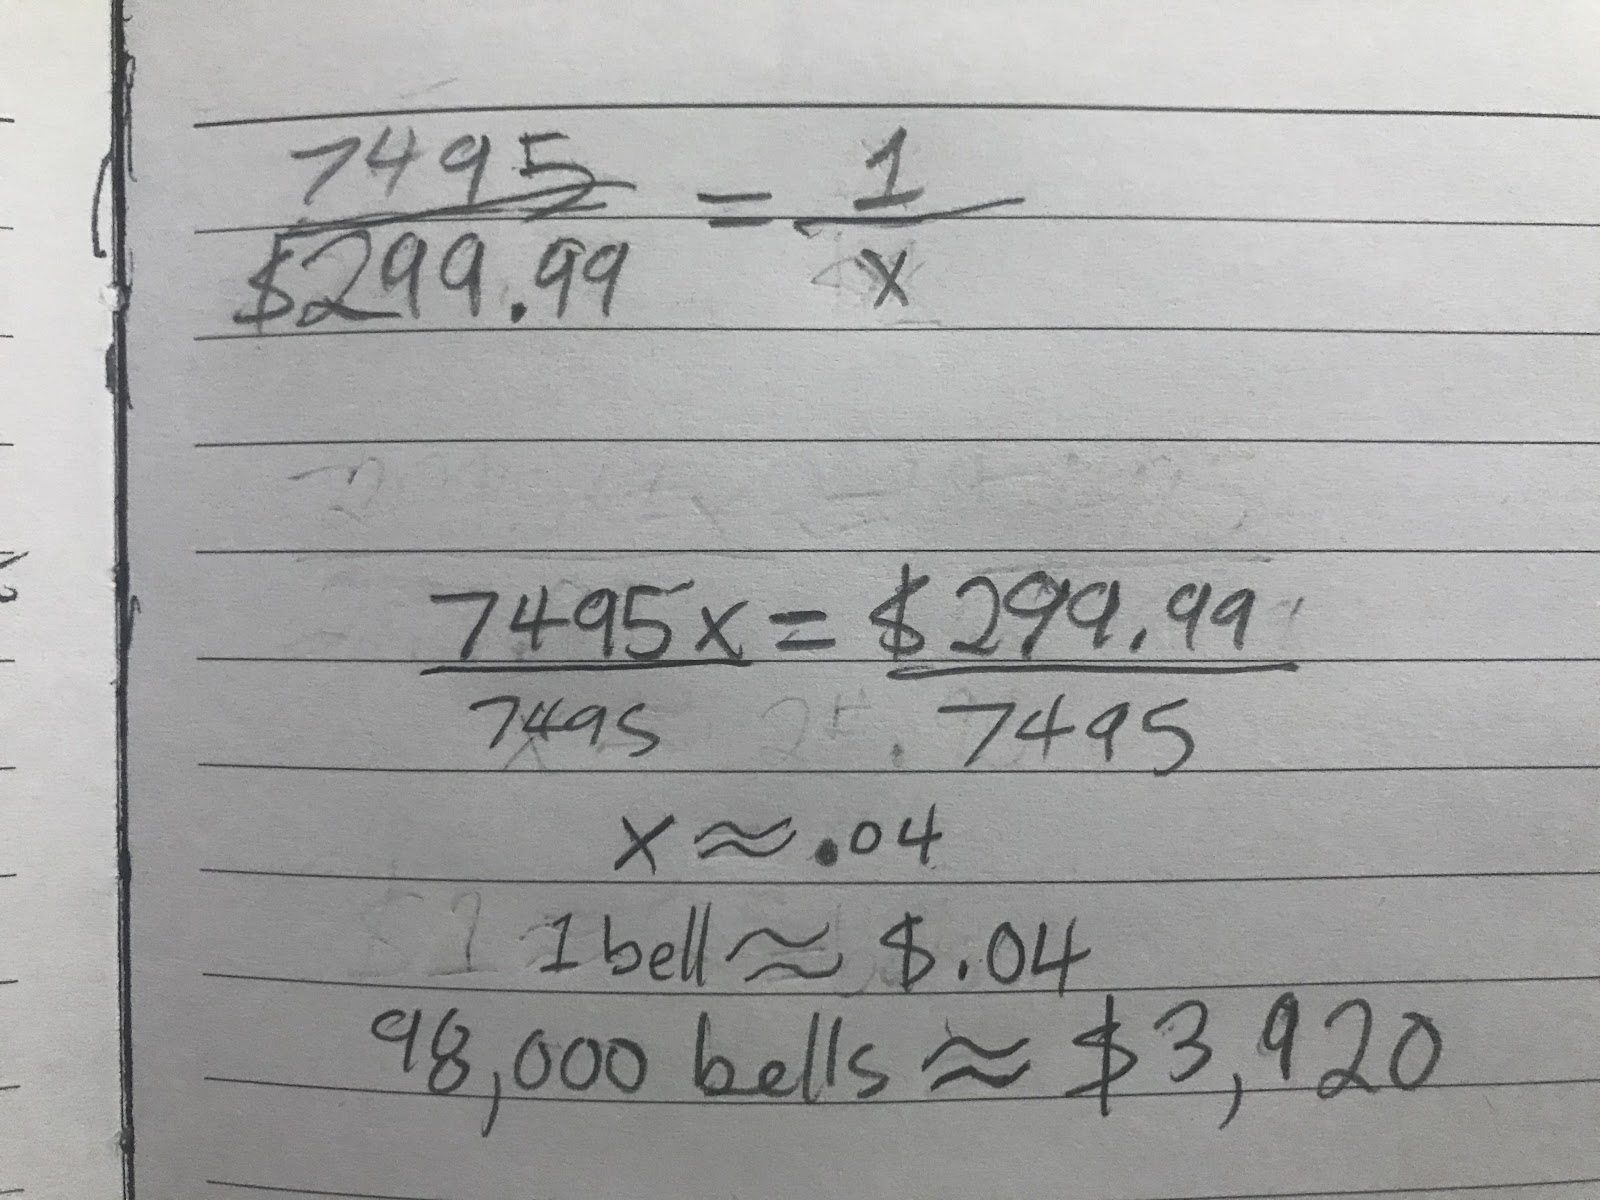 7495 = 1
$299.99 x
7495x = $299.99
7495 7495
x ≈ .04
1 bell ≈ $.04
98,000 bells ≈ $3,920